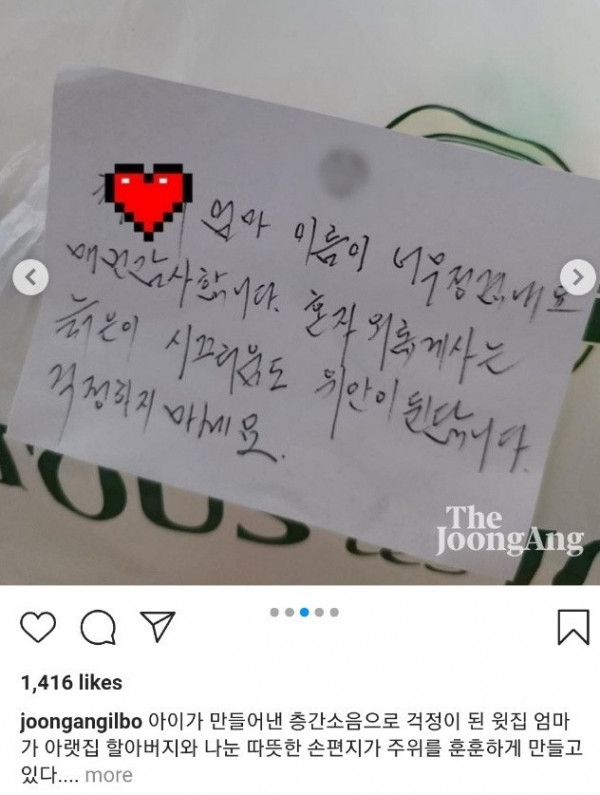 엄마 이름이 너무정겹네요
매번감사합니다. 혼자 외롭게사는
늙은이 시끄러움도 위안이 된답니다.
걱정하지 마세요.
The
JoongAng
1,416 likes
joongangilbo 아이가 만들어낸 층간소음으로 걱정이 된 윗집 엄마
가 아랫집 할아버지와 나눈 따뜻한 손편지가 주위를 훈훈하게 만들고
있다.... more